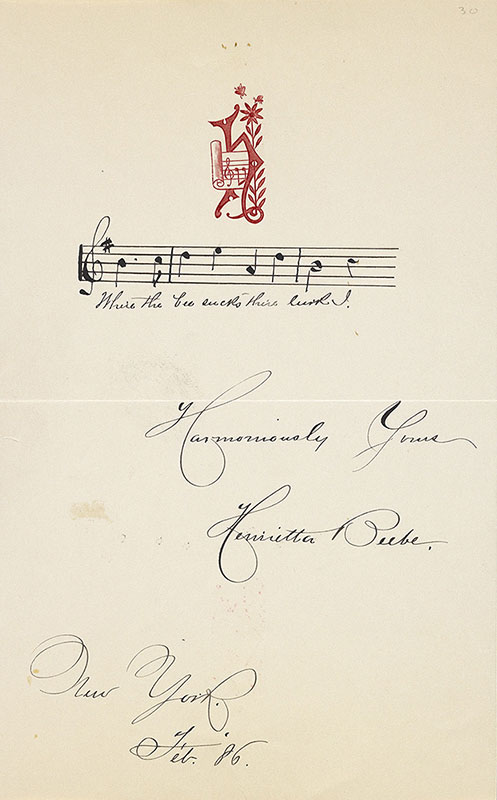 30
H
Where the bee sucks there lurk I.
Harmoniously Yours
Henrietta Beebe.
New York.
Feb. '86.